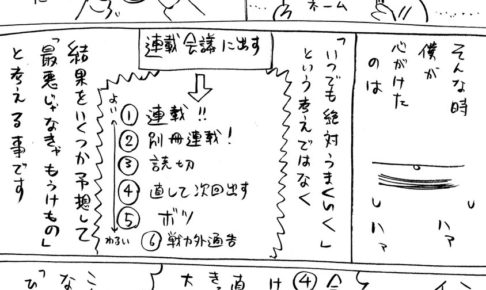 ネーム
そんな時
僕が
心がけた
のは
ハァ
ハァ
「いつでも絶対うまくいく」
という考えではなく
連載会議に出す
よい
① 連載!!
② 別冊連載!
③ 読切
④ 直して次回出す
⑤ ボツ
わるい
⑥ 戦力外通告
結果をいくつか予想して
「最悪じゃなきゃもうけもの」
と考える事です